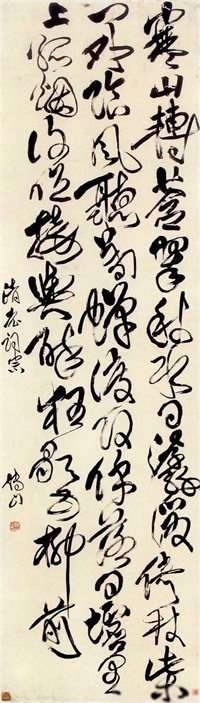 寒山轉蒼翠秋水日潺湲倚杖柴
門外臨風聽暮蟬渡頭餘落日墟里
上孤煙復值接輿醉狂歌五柳前
老詞宗 傅山